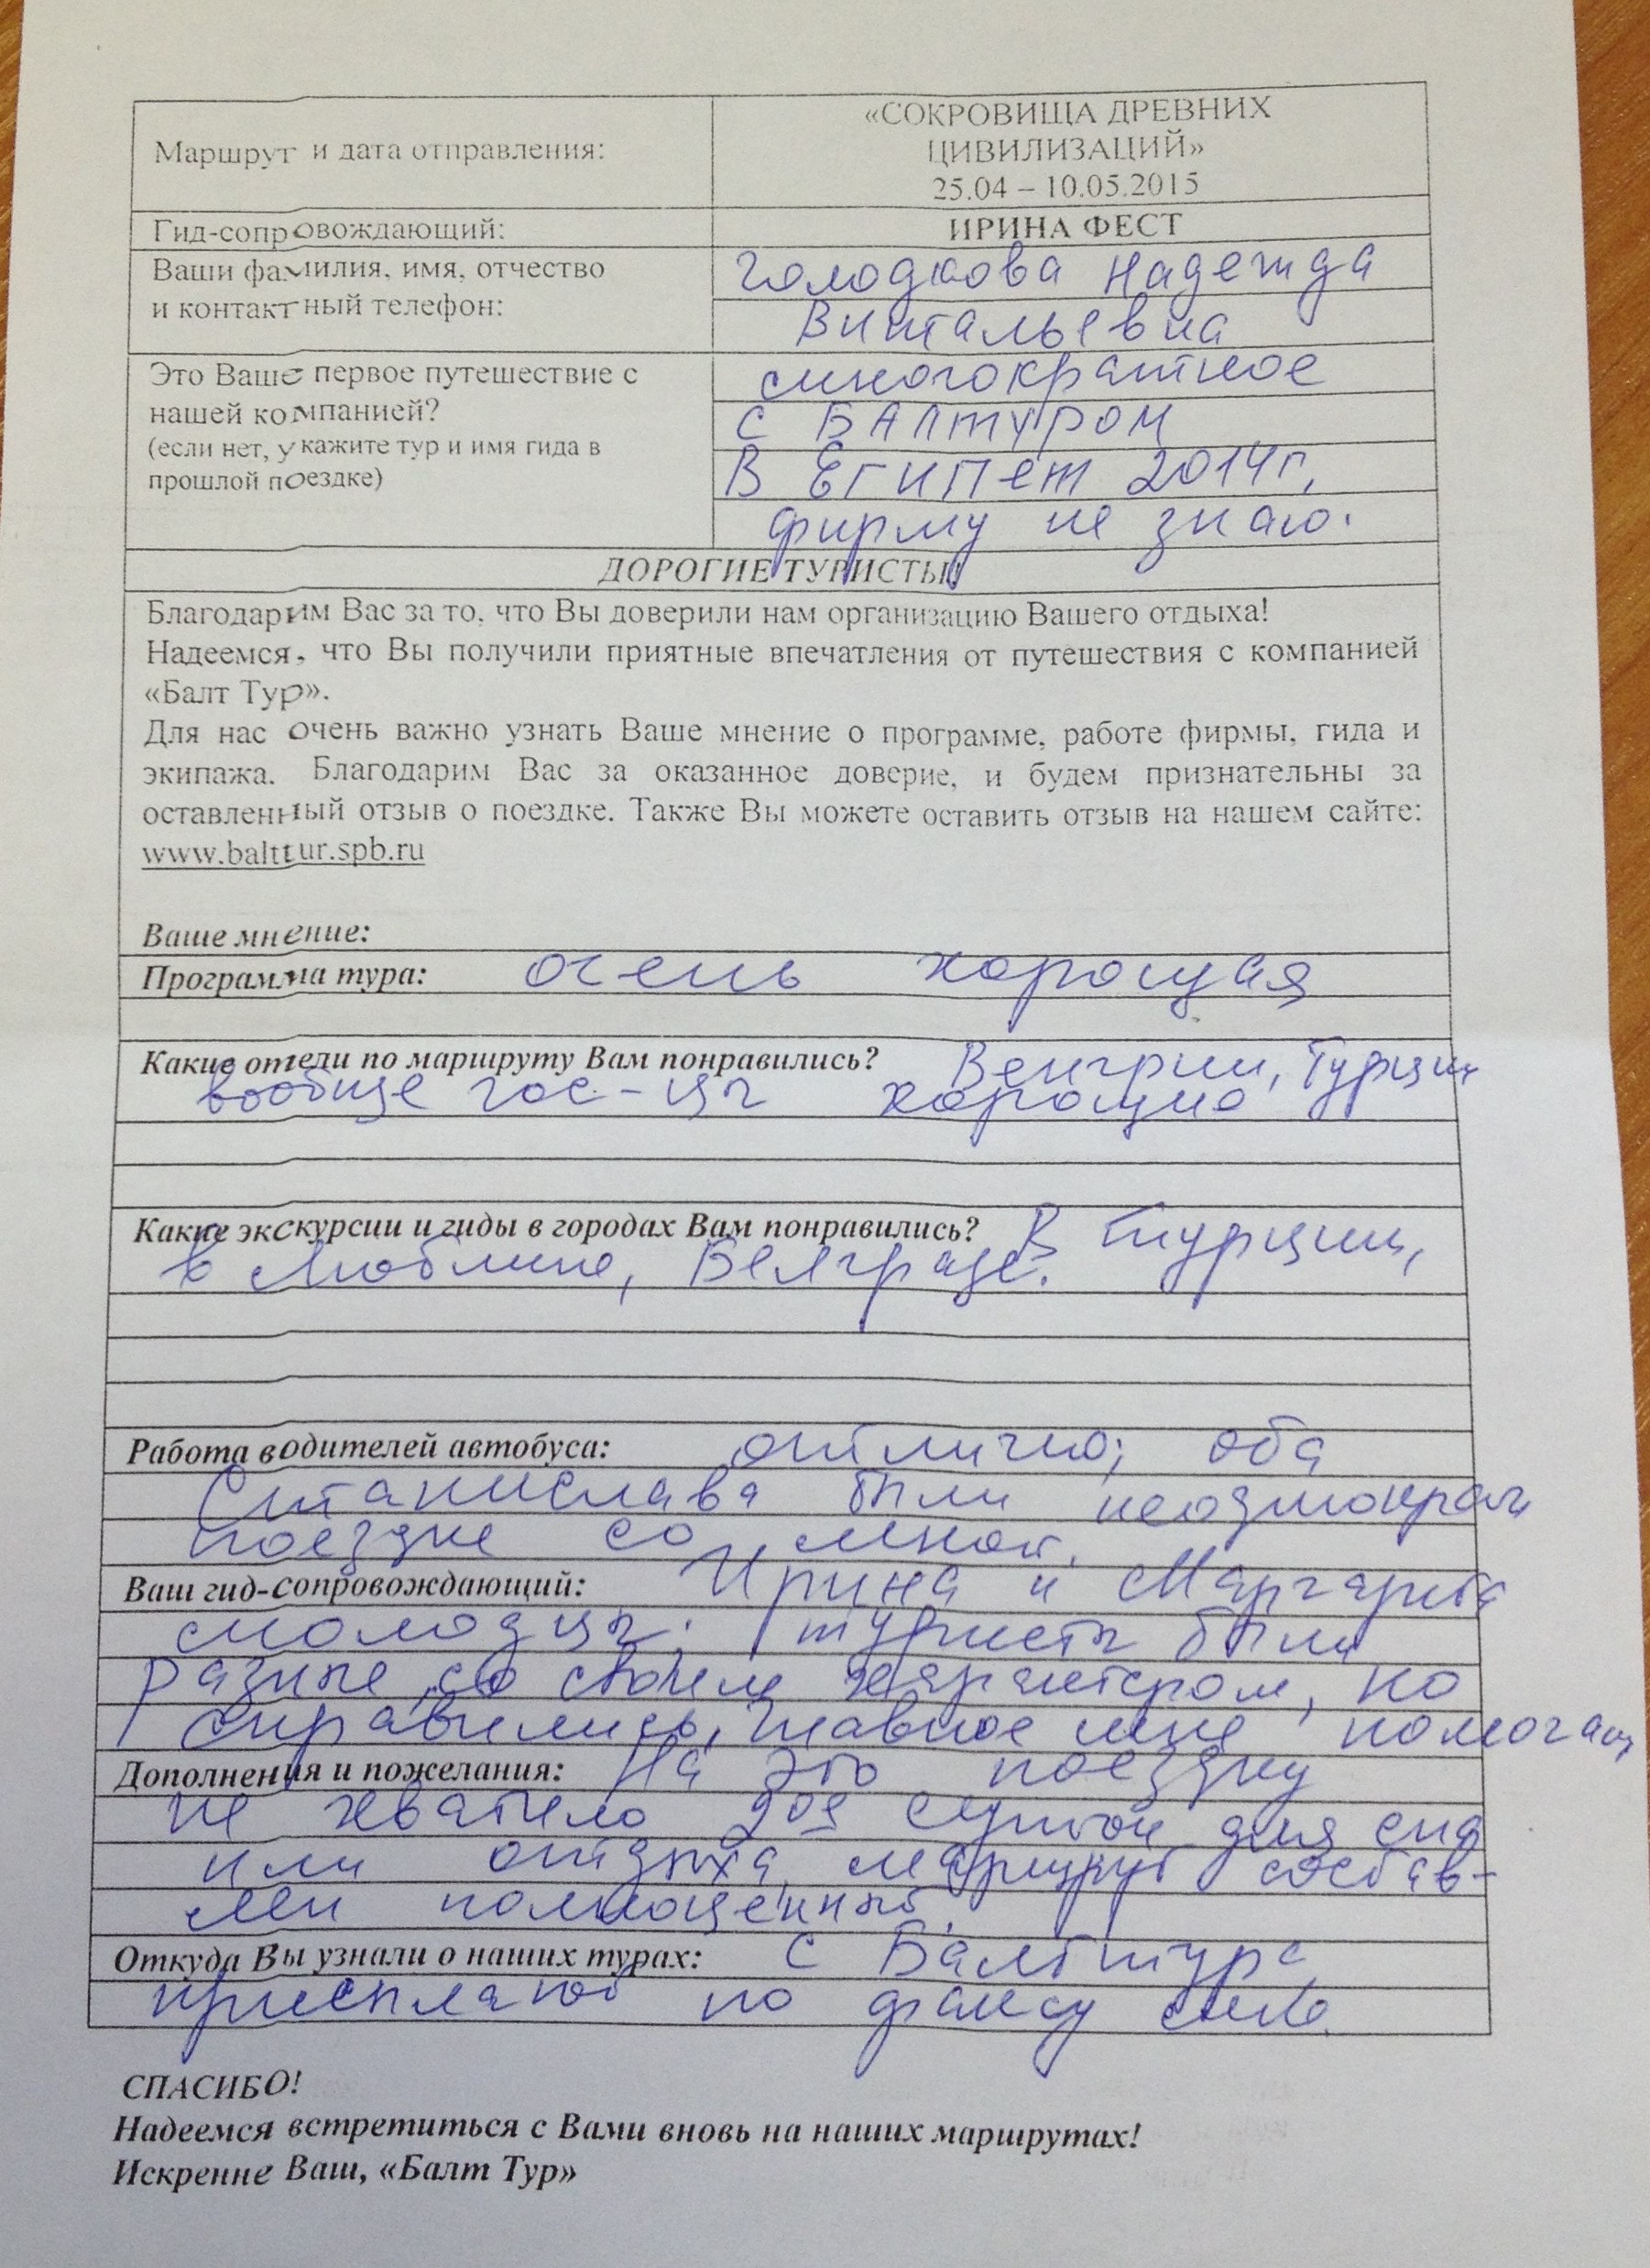 Маршрут и дата отправления:
«СОКРОВИЩА ДРЕВНИХ
ЦИВИЛИЗАЦИЙ»
25.04 – 10.05.2015
Гид-сопровождающий:
ИРИНА ФЕСТ
Ваши фамилия, имя, отчество
и контактный телефон:
Голодкова Надежда
Витальевна
Это Ваше первое путешествие с
нашей компанией?
(если нет, укажите тур и имя гида в
прошлой поездке)
многократное
с БАЛТТУРОМ
В ЕГИПЕТ 2014г,
фирму не знаю.
ДОРОГИЕ ТУРИСТЫ!
Благодарим Вас за то, что Вы доверили нам организацию Вашего отдыха!
Надеемся, что Вы получили приятные впечатления от путешествия с компанией
«Балт Тур».
Для нас очень важно узнать Ваше мнение о программе, работе фирмы, гида и
экипажа. Благодарим Вас за оказанное доверие, и будем признательны за
оставленный отзыв о поездке. Также Вы можете оставить отзыв на нашем сайте:
www.balttur.spb.ru
Ваше мнение:
Программа тура: очень хорошая
Какие отели по маршруту Вам понравились? Венгрии, Турции
вообще гос-цы хорошие
Какие экскурсии и гиды в городах Вам понравились? В Турции,
в Люблине, Белграде.
Работа водителей автобуса: отлично; оба
Станислава были неоднократ
поездке со мной.
Ваш гид-сопровождающий: Ирина и Маргарита
молодцы. туристы были
разные, со своим характером, но
справились, главное мне
Дополнения и пожелания: На эту поездку
не хватило суток для сна
или отдыха, маршрут состав-
лен полноценный.
Откуда Вы узнали о наших турах: с Балттура
присылают по факсу мне.
СПАСИБО!
Надеемся встретиться с Вами вновь на наших маршрутах!
Искренне Ваш, «Балт Тур»